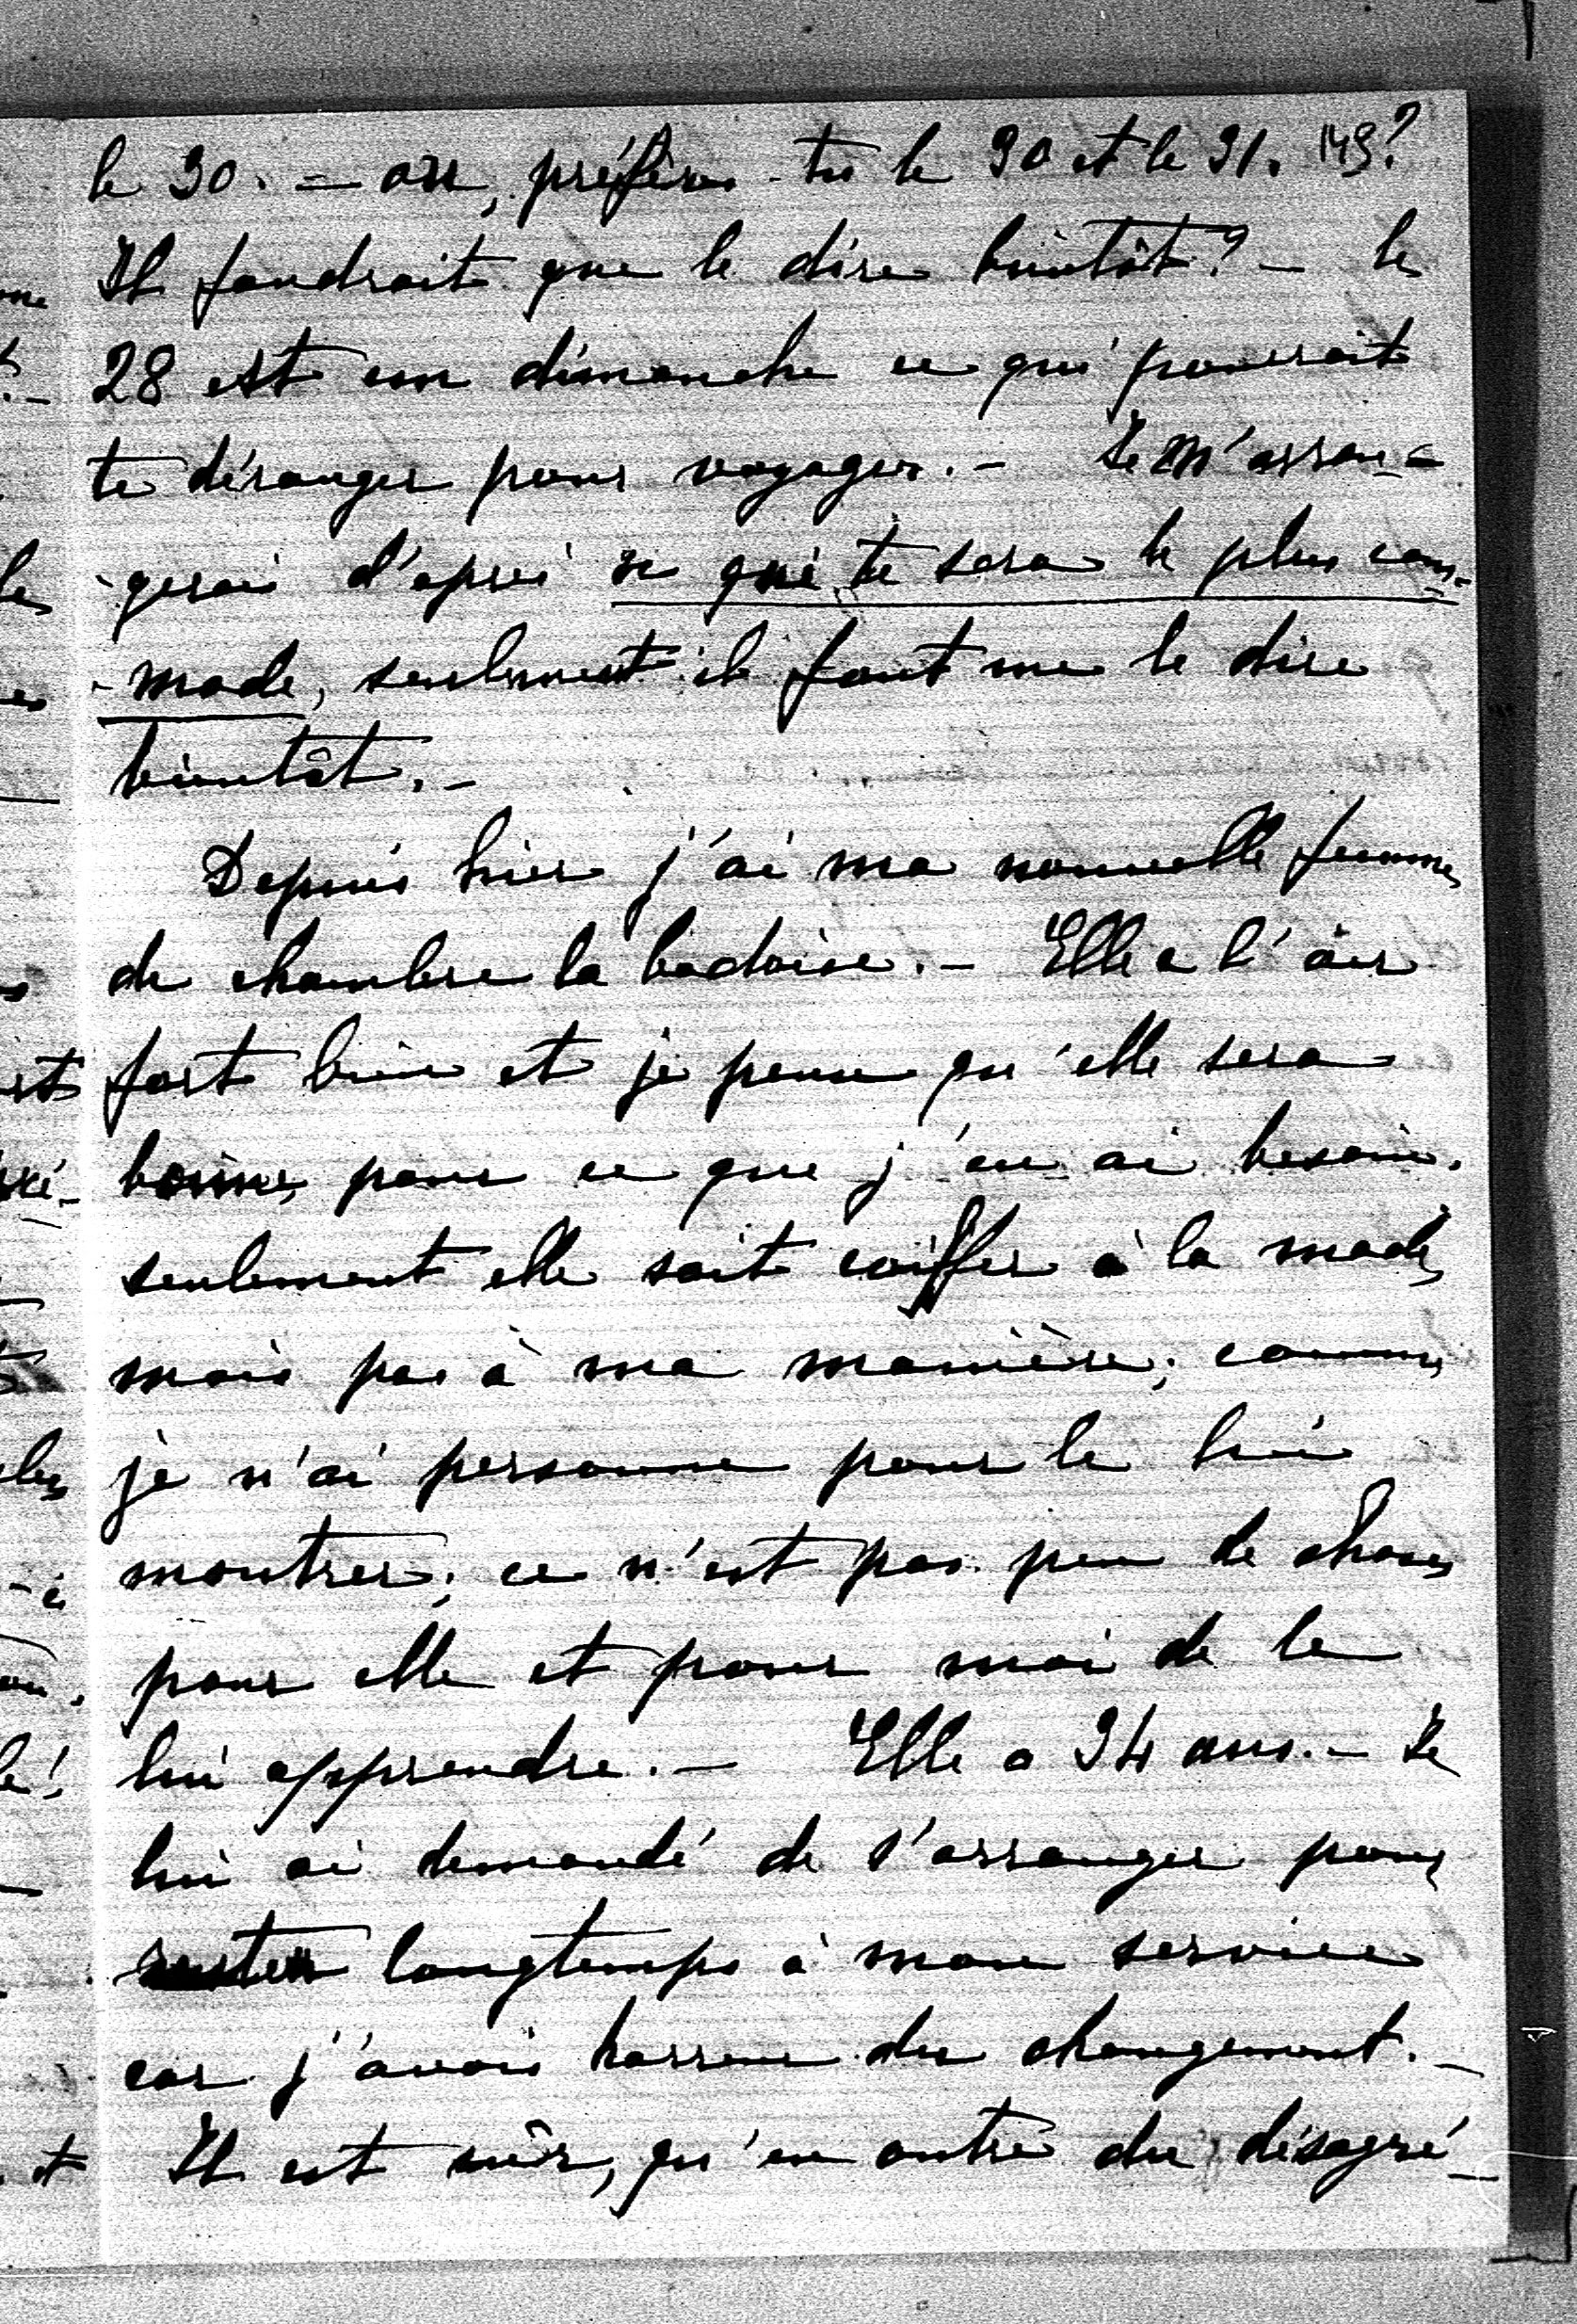 le 30. – ou, préfères-tu le 30 et le 31. 143?
Il faudrait que le dire bientôt? – le
28 est un dimanche ce qui pourrait
te déranger pour voyager. – Je m'arran=
-gerai d'après ce qui te sera le plus com=
-mode, seulement il faut me le dire
bientôt. –
Depuis hier j'ai ma nouvelle femme
de chambre la badoise. – Elle a l'air
fort bien et je pense qu'elle sera
bonne pour ce que j'en ai besoin.
seulement elle sait coiffer à la mode
mais pas à ma manière; comme
je n'ai personne pour le lui
montrer; ce n'est pas peu de chose
pour elle et pour moi de le
lui apprendre. – Elle a 34 ans. – Je
lui ai demandé de s'arranger pour
rester longtemps à mon service
car j'avais horreur du changement. –
Il est sûr, qu'en outre du désagré-